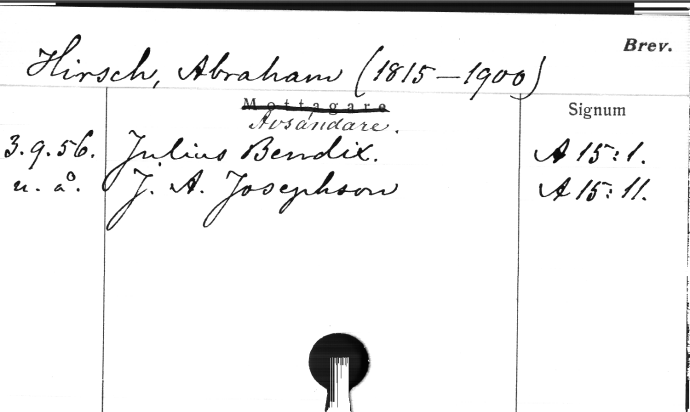 Brev.
Hirsch, Abraham (1815–1900)
Mottagare Signum
Avsändare.
3.9.56. Julius Bendix. A 15:1.
u. å. J. A. Josephson A 15:11.